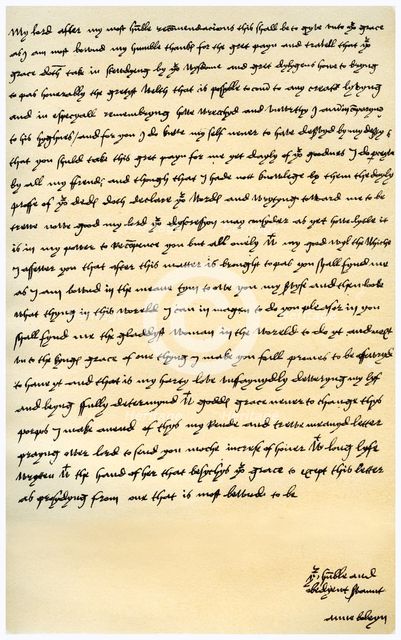 My lord after my most humble recomendacions this shall be to gyve unto yr grace
as I am most bownd my humble thanks for the gret payn and travell that yr
grace doth take in steudyeng by yr wysdome and gret dylygens howe to bryng
to pas honerably the gretyst welth that is possyble to com to any creator lyvyng
and in especyall remembryng howe wrecchyd and unwrthy I am in comparyng
to his hyghnes and for you I do knowe my self never to have deservyd by my
that you shuld take this gret payn for me yet dayly of yr goodnes I do perceyve
by all my frends and though that I hade nott knowlege by them the dayly
proffe of yr deds doth declare yr words and wrytyng toward me to be
trewe nowe good my lord yr dyscressyon may consyder as yet howe lytle it
is in my power to recompence you but all onely wt my good wyl the whiche
I assewer you that after this matter is brought to pas you shall fynd me
as I am bownd in the meane tym to owe you my servyse and then looke
what thyng in this world I can inmagen to do you pleasor in you
shall fynd me the gladdyst woman in the woreld to do yt and next
unto the kyngs grace of one thyng I make you full promes to be assewryd
to have yt and that is my harty love unfaynydly deweryng my lyf
and beyng fully determynd wt goddes grace never to change thys
porpos I make an end of thys my reude and trewe meanyd letter
prayng ower lord to send you moche increse of honer wt long lyfe
wryten wt the hand of her that besychys yr grace to except this letter
as prosydyng from one that is most bownd to be
yr humble and
obedyent servant
anne boleyn